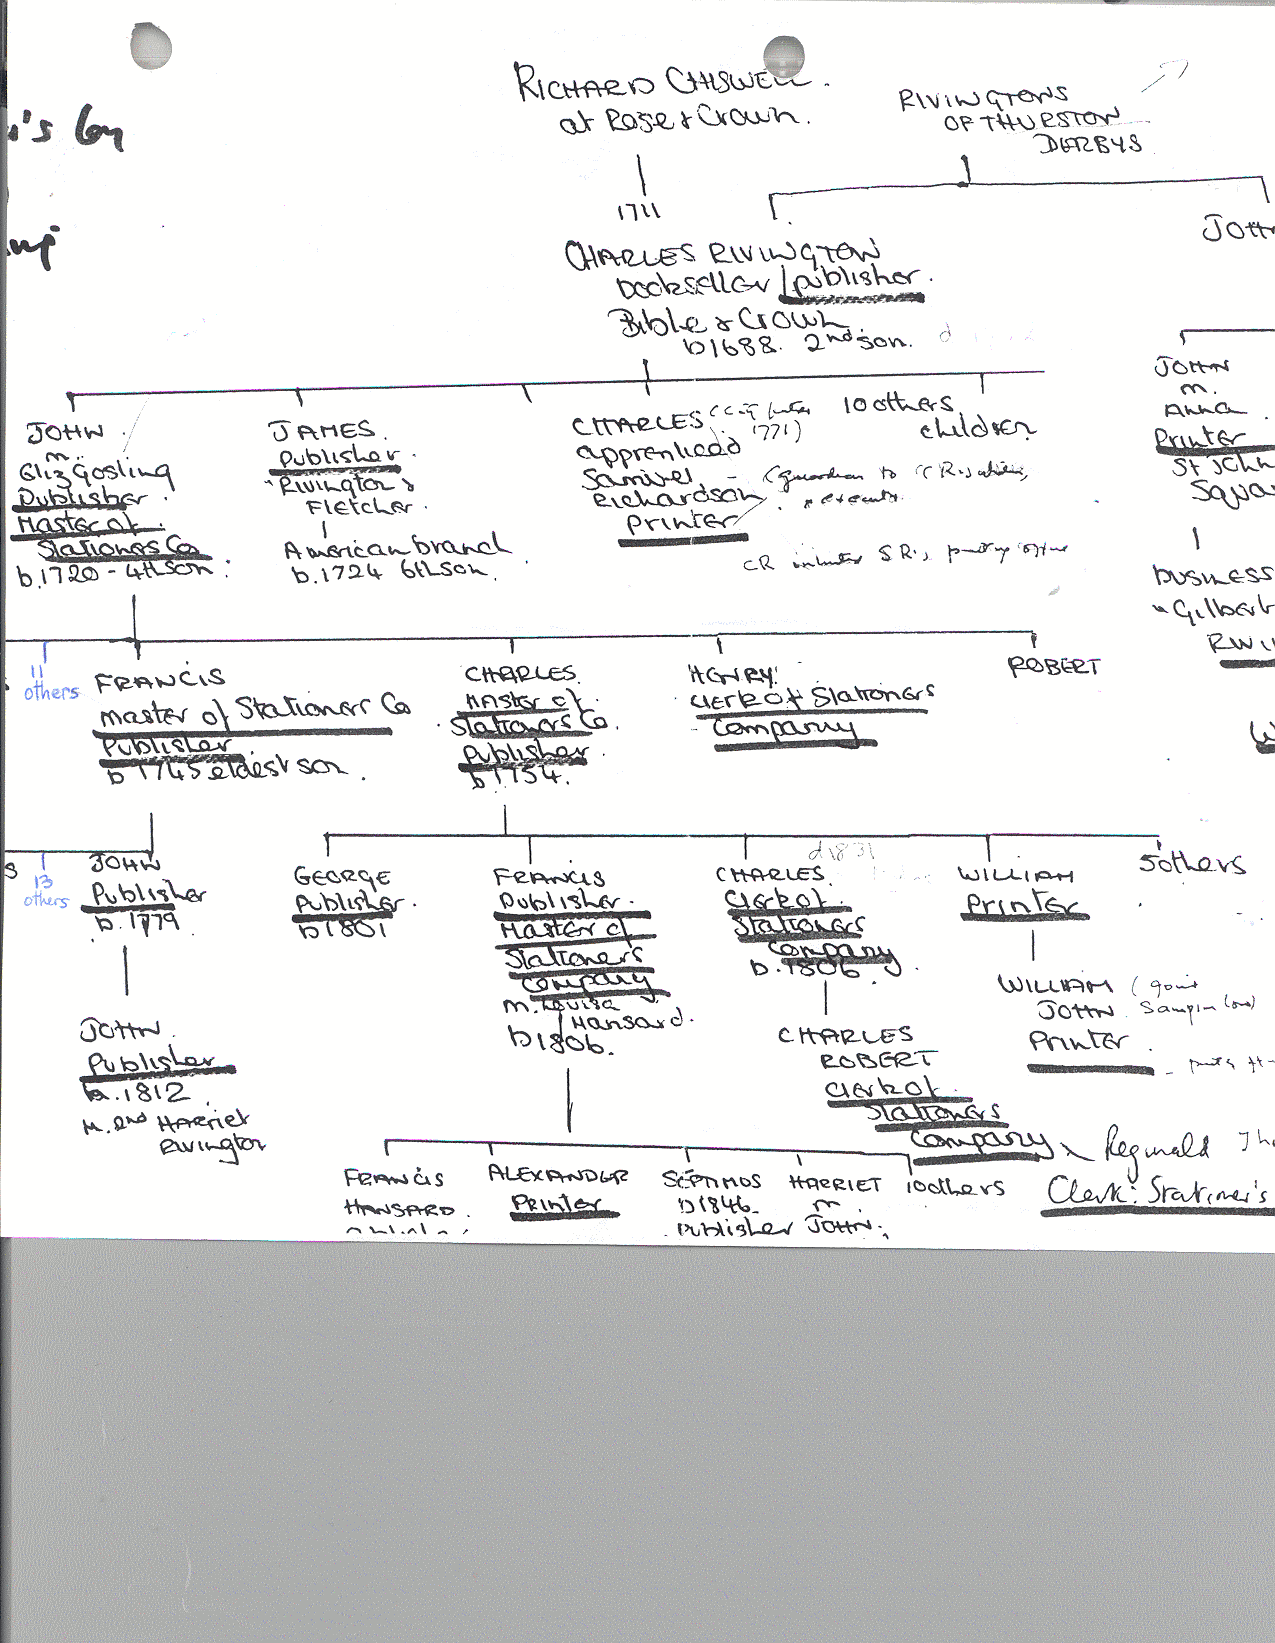 RICHARD CHISWELL.
at Rose & Crown.
RIVINGTONS
OF THURSTON
DERBYS
1711
CHARLES RIVINGTON
bookseller / publisher.
Bible & Crown
b1688. 2nd son.
JOHN
m.
Eliz Gosling
Publisher.
Master of
Stationers Co
b.1720 - 4th son.
JAMES.
Publisher.
"Rivington &
Fletcher.
American branch
b.1724 6th son.
CHARLES
1771)
Samuel
Richardson
Printer
(guardian to
10 others
children
JOHN
m.
Anna
Printer
St John
business
"Gilbert
11
others
FRANCIS
Master of Stationers Co
Publisher.
b 1745 eldest son.
CHARLES.
Master of
Stationers Co.
Publisher.
b 1754.
HENRY.
Clerk of Stationers
Company
ROBERT
13
others
JOHN
Publisher
b. 1779
GEORGE
Publisher.
b 1801
FRANCIS
Publisher.
Master of
Stationers
Company
m. Louisa
Hansard.
b1806.
d1831
CHARLES.
Clerk of
Stationers
Company
b. 1806.
WILLIAM
Printer
5 others
JOHN.
Publisher
b. 1812
M. 2nd HARRIET
Rivington
CHARLES
ROBERT
Clerk of
Stationers
Company
Reginald
Clerk: Stationer's
WILLIAM
JOHN
Printer.
FRANCIS
HANSARD.
ALEXANDER
Printer
SEPTIMOS
b1846
Publisher
HARRIET
m.
JOHN.
10 others